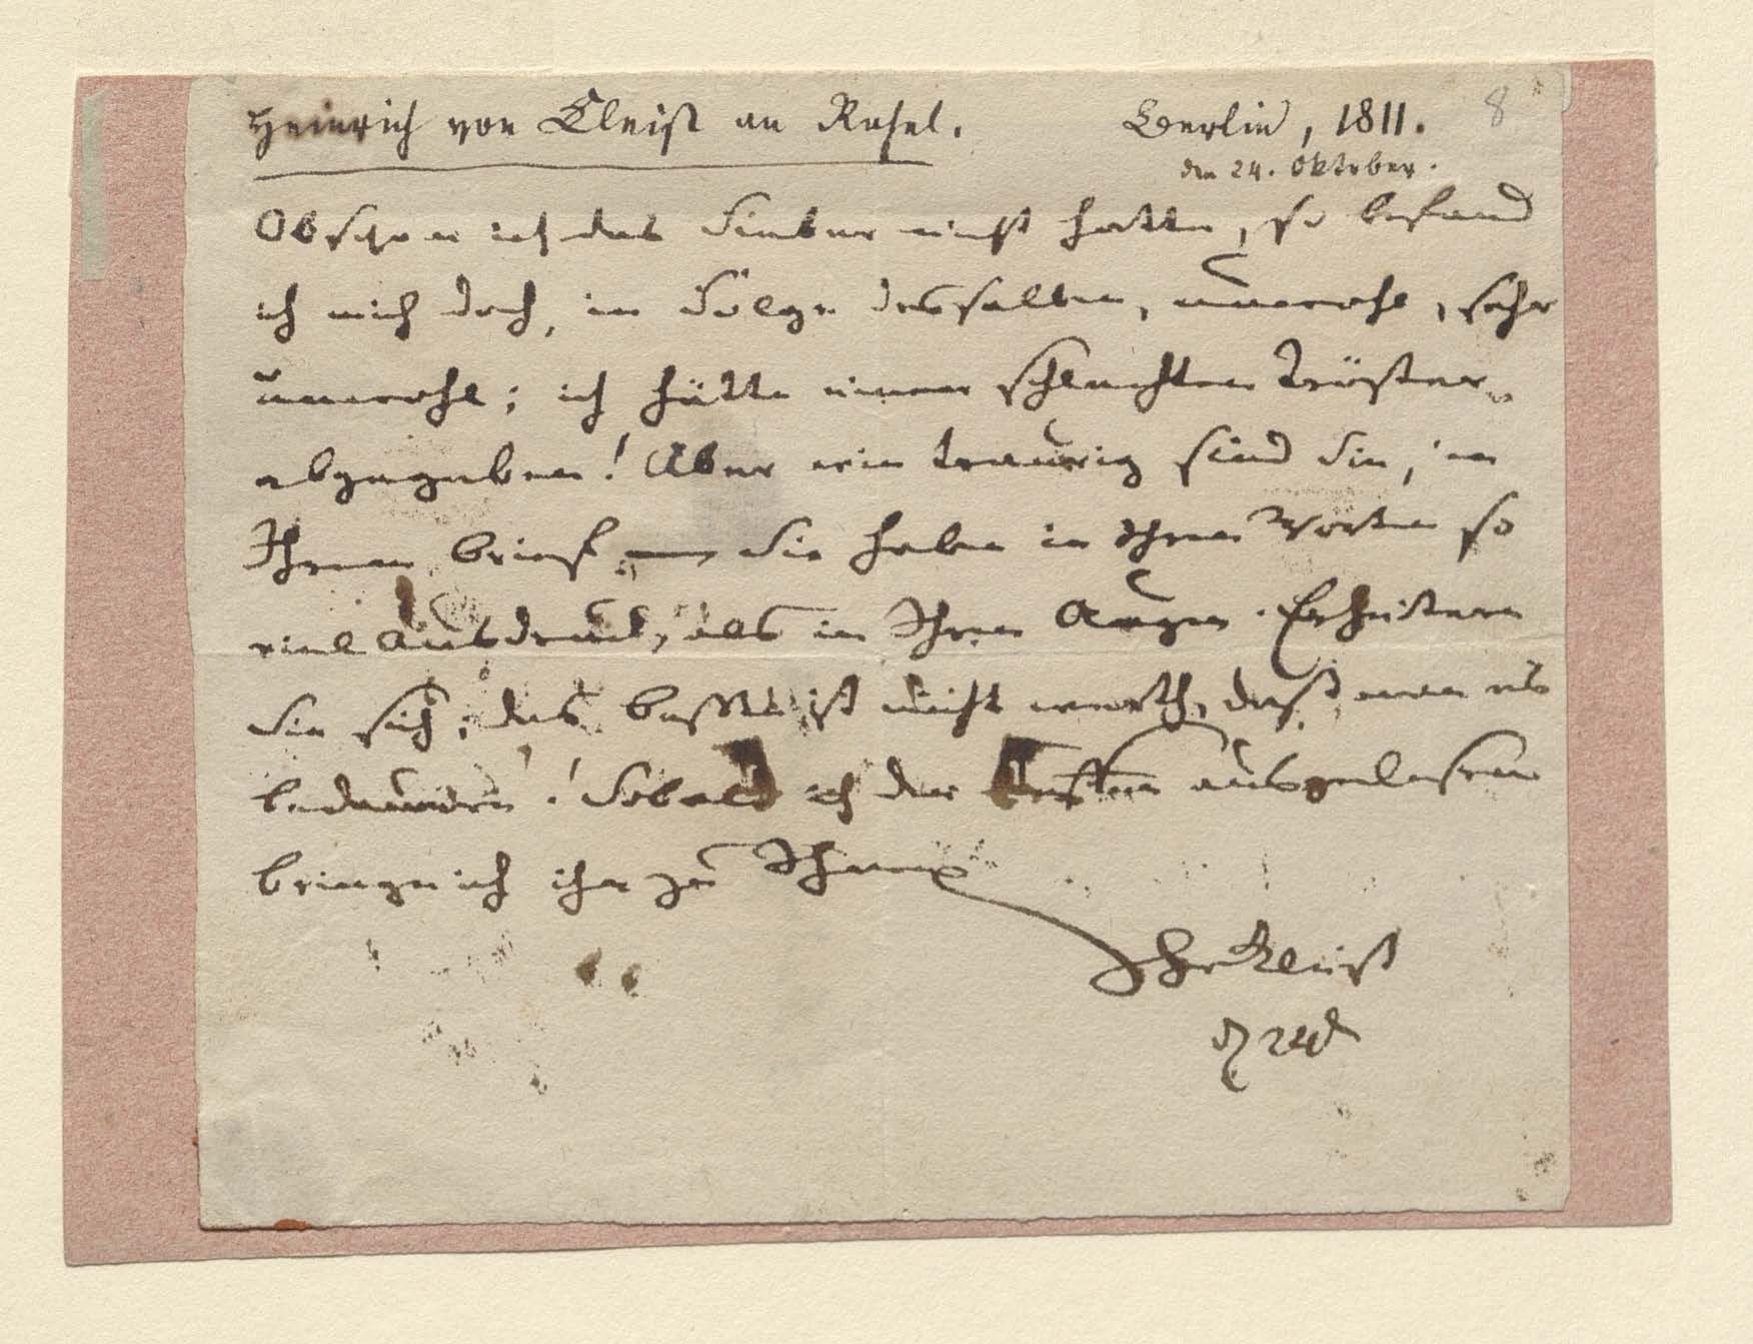 Heinrich von Kleist an Rahel.
Berlin, 1811. 8
den 24. Oktober.
Obschon ich das Fieber nicht hatte, so befand
ich mich doch, in Folge desselben, unwohl, sehr
unwohl; ich hätte einen schlechten Tröster
abgegeben! Aber wie traurig sind Sie, in
Ihrem Brief. — Sie haben in Ihren Worten so
viel Ausdruck, als in Ihren Augen. Erheitern
Sie sich; das Beste ist nicht werth, daß man es
bedauere! Sobald ich den Steffen ausgelesen
bringe ich ihn zu Ihnen
HvKleist
d 24t